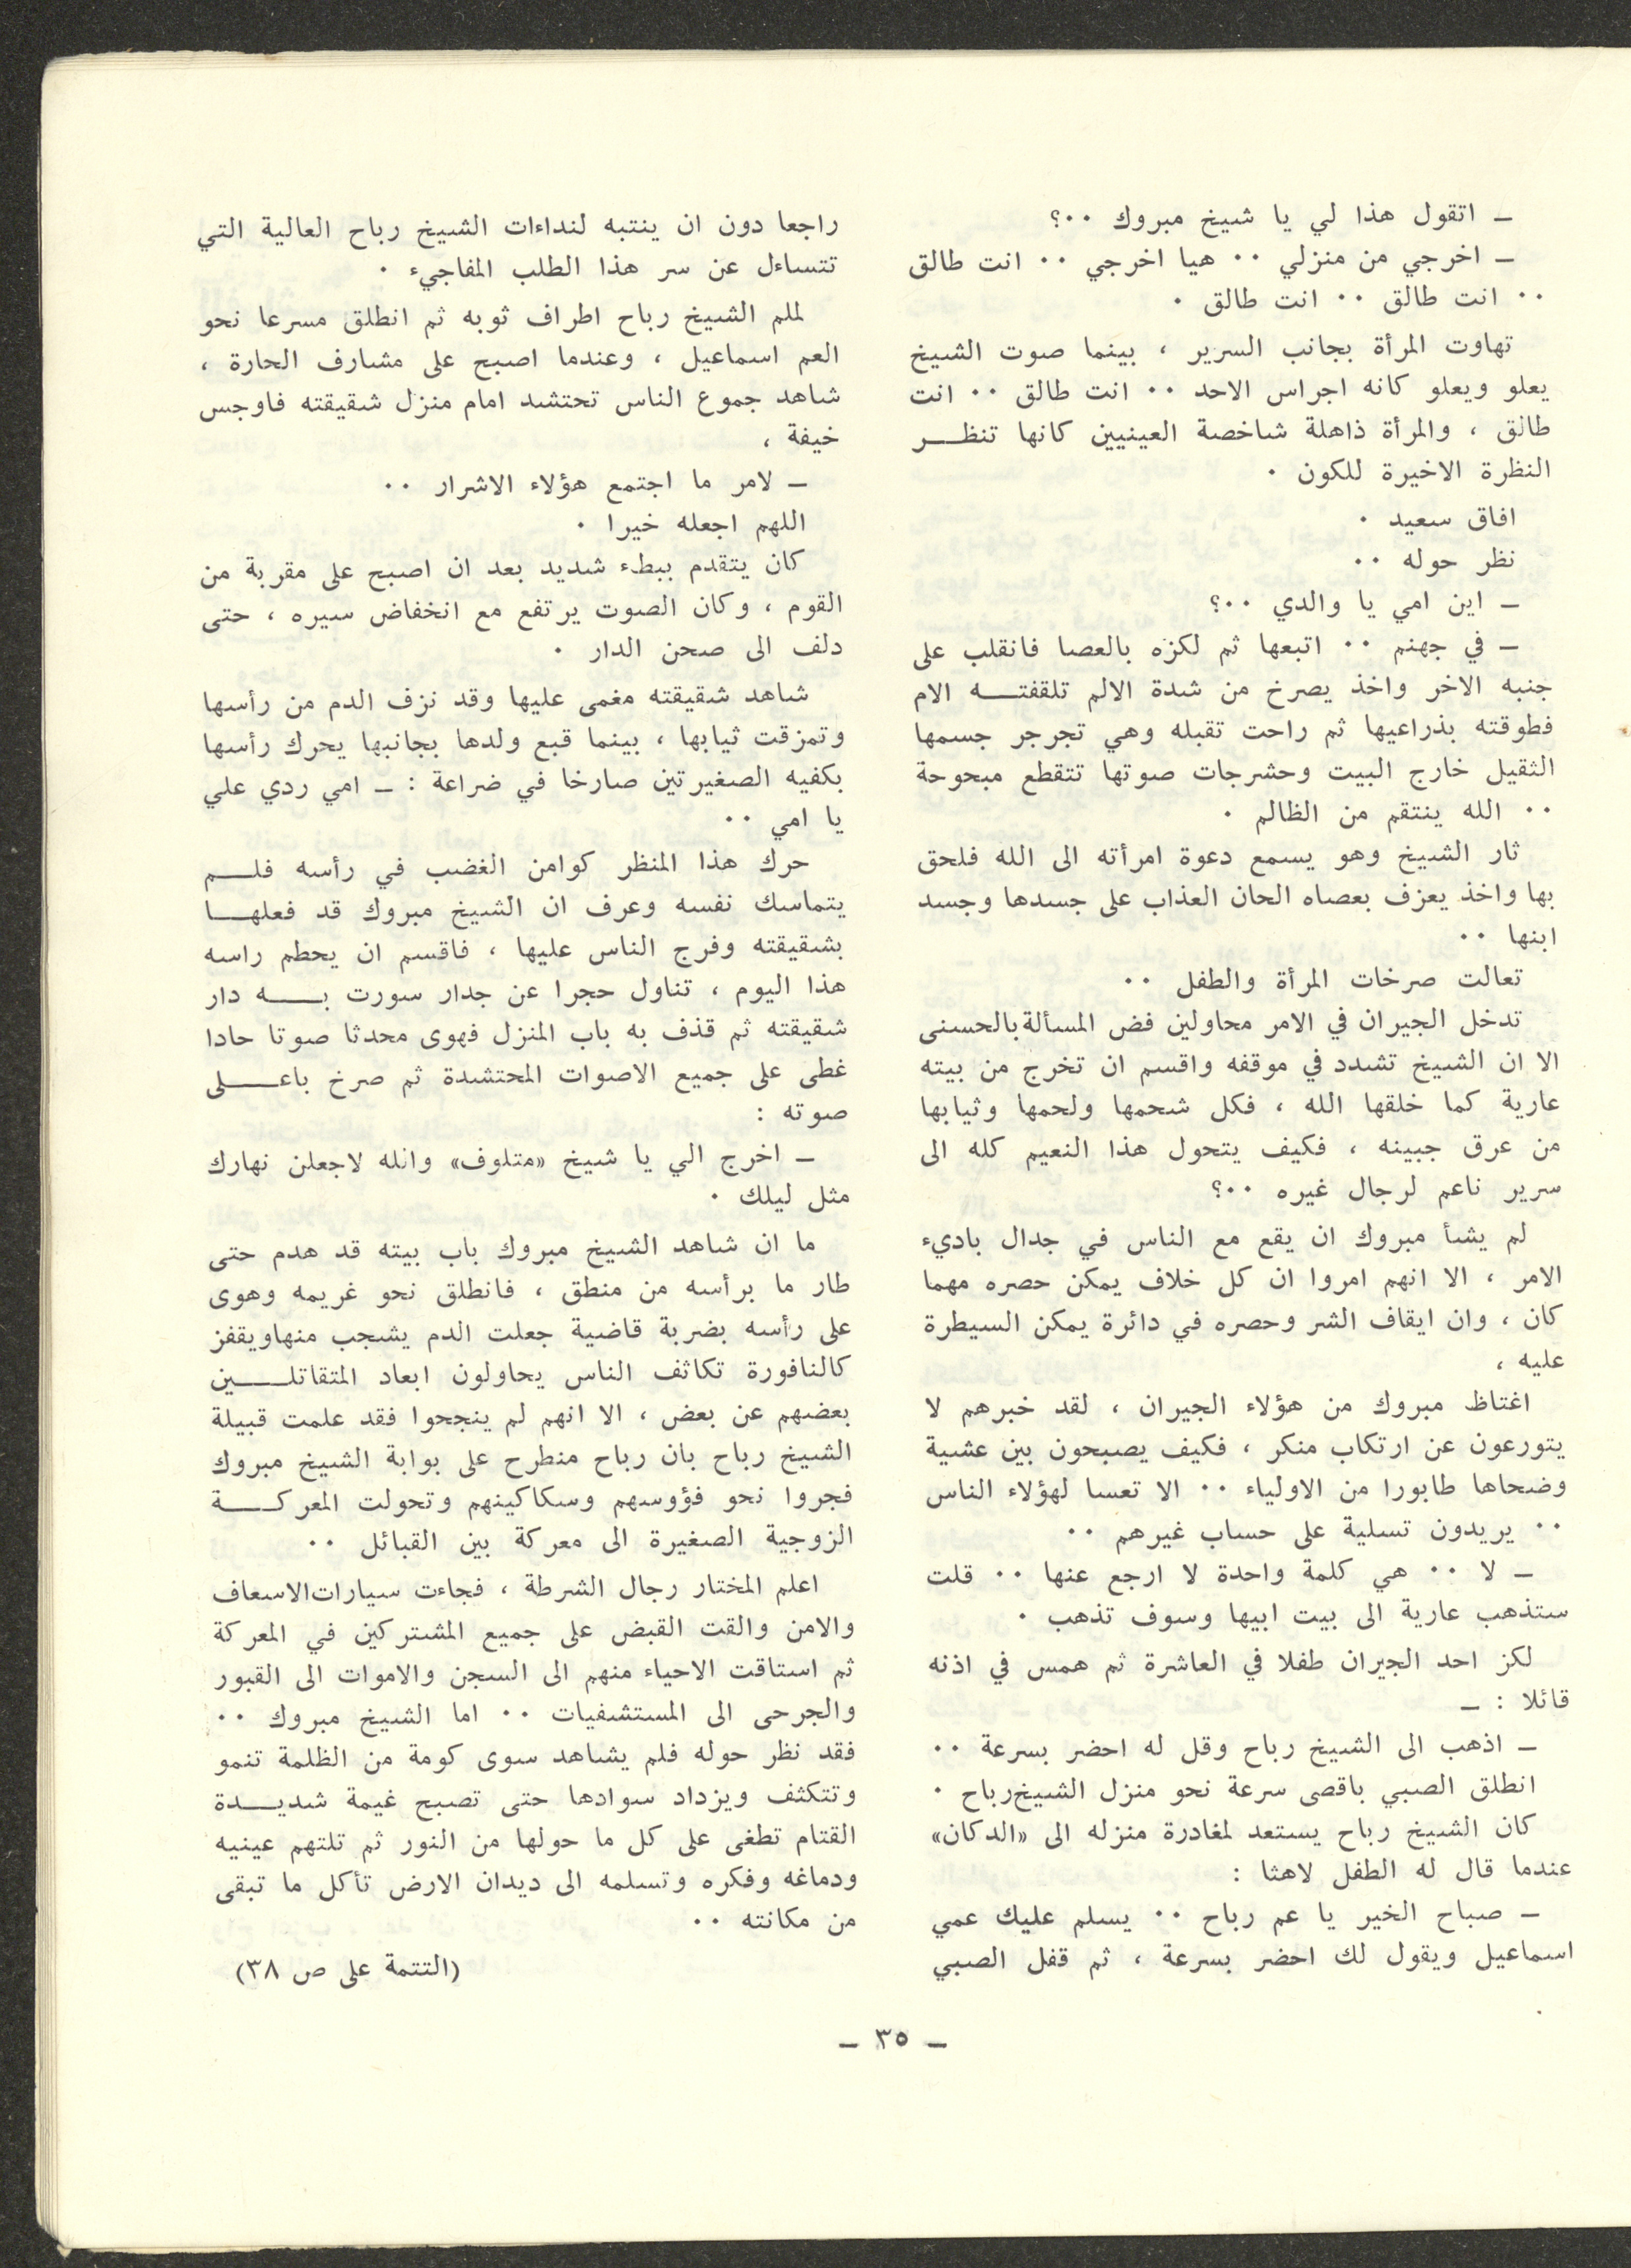 ـ اتقول هذا لي يا شيخ مبروك ٠٠؟
ـ اخرجي من منزلي ٠٠ هيا اخرجي ٠٠ انت طالق
٠٠ انت طالق ٠٠ انت طالق ٠
تهاوت المرأة بجانب السرير ، بينما صوت الشيخ
يعلو ويعلو كانه اجراس الاحد ٠٠ انت طالق ٠٠ انت
طالق ، والمرأة ذاهلة شاخصة العينيين كانها تنظـــر
النظرة الاخيرة للكون ٠
افاق سعيد ٠
نظر حوله ٠٠
ـ اين امي يا والدي ٠٠؟
ـ في جهنم ٠٠ اتبعها ثم لكزه بالعصا فانقلب على
جنبه الاخر واخذ يصرخ من شدة الالم تلقفتـــه الام
فطوقته بذراعيها ثم راحت تقبله وهي تجرجر جسمها
الثقيل خارج البيت وحشرجات صوتها تتقطع مبحوحة
٠٠ الله ينتقم من الظالم ٠
ثار الشيخ وهو يسمع دعوة امرأته الى الله فلحق
بها واخذ يعزف بعصاه الحان العذاب على جسدها وجسد
ابنها ٠٠
تعالت صرخات المرأة والطفل ٠٠
تدخل الجيران في الامر محاولين فض المسألة بالحسنى
الا ان الشيخ تشدد في موقفه واقسم ان تخرج من بيته
عارية كما خلقها الله ، فكل شحمها ولحمها وثيابها
من عرق جبينه ، فكيف يتحول هذا النعيم كله الى
سرير ناعم لرجال غيره ٠٠؟
لم يشأ مبروك ان يقع مع الناس في جدال باديء
الامر ، الا انهم امروا ان كل خلاف يمكن حصره مهما
كان ، وان ايقاف الشر وحصره في دائرة يمكن السيطرة
عليه ،
اغتاظ مبروك من هؤلاء الجيران ، لقد خبرهم لا
يتورعون عن ارتكاب منكر ، فكيف يصبحون بين عشية
وضحاها طابورا من الاولياء ٠٠ الا تعسا لهؤلاء الناس
٠٠ يريدون تسلية على حساب غيرهم ٠٠
ـ لا ٠٠ هي كلمة واحدة لا ارجع عنها ٠٠ قلت
ستذهب عارية الى بيت ابيها وسوف تذهب ٠
لكز احد الجيران طفلا في العاشرة ثم همس في اذنه
قائلا : ـ
ـ اذهب الى الشيخ رباح وقل له احضر بسرعة ٠٠
انطلق الصبي باقصى سرعة نحو منزل الشيخ رباح ٠
كان الشيخ رباح يستعد لمغادرة منزله الى «الدكان»
عندما قال له الطفل لاهثا :
ـ صباح الخير يا عم رباح ٠٠ يسلم عليك عمي
اسماعيل ويقول لك احضر بسرعة ، ثم قفل الصبي
راجعا دون ان ينتبه لنداءات الشيخ رباح العالية التي
تتساءل عن سر هذا الطلب المفاجيء ٠
لملم الشيخ رباح اطراف ثوبه ثم انطلق مسرعا نحو
العم اسماعيل ، وعندما اصبح على مشارف الحارة ،
شاهد جموع الناس تحتشد امام منزل شقيقته فاوجس
خيفة ،
ـ لامر ما اجتمع هؤلاء الاشرار ٠٠
اللهم اجعله خيرا ٠
كان يتقدم ببطء شديد بعد ان اصبح على مقربة من
القوم ، وكان الصوت يرتفع مع انخفاض سيره ، حتى
دلف الى صحن الدار ٠
شاهد شقيقته مغمى عليها وقد نزف الدم من رأسها
وتمزقت ثيابها ، بينما قبع ولدها بجانبها يحرك رأسها
بكفيه الصغيرتين صارخا في ضراعة : ـ امي ردي علي
يا امي ٠٠
حرك هذا المنظر كوامن الغضب في رأسه فلـــم
يتماسك نفسه وعرف ان الشيخ مبروك قد فعلهـــا
بشقيقته وفرج الناس عليها ، فاقسم ان يحطم راسه
هذا اليوم ، تناول حجرا عن جدار سورت بـــه دار
شقيقته ثم قذف به باب المنزل فهوى محدثا صوتا حادا
غطى على جميع الاصوات المحتشدة ثم صرخ باعـــلى
صوته :
ـ اخرج الي يا شيخ «متلوف» والله لاجعلن نهارك
مثل ليلك ٠
ما ان شاهد الشيخ مبروك باب بيته قد هدم حتى
طار ما برأسه من منطق ، فانطلق نحو غريمه وهوى
على رأسه بضربة قاضية جعلت الدم يشجب منها ويقفز
كالنافورة تكاثف الناس يحاولون ابعاد المتقاتلـــين
بعضهم عن بعض ، الا انهم لم ينجحوا فقد علمت قبيلة
الشيخ رباح بان رباح منطرح على بوابة الشيخ مبروك
فجروا نحو فؤوسهم وسكاكينهم وتحولت المعركـــة
الزوجية الصغيرة الى معركة بين القبائل ٠٠
اعلم المختار رجال الشرطة ، فجاءت سيارات الاسعاف
والامن والقت القبض على جميع المشتركين في المعركة
ثم استاقت الاحياء منهم الى السجن والاموات الى القبور
والجرحى الى المستشفيات ٠٠ اما الشيخ مبروك ٠٠
فقد نظر حوله فلم يشاهد سوى كومة من الظلمة تنمو
وتتكثف ويزداد سوادها حتى تصبح غيمة شديـــدة
القتام تطغى على كل ما حولها من النور ثم تلتهم عينيه
ودماغه وفكره وتسلمه الى ديدان الارض تأكل ما تبقى
من مكانته ٠٠
(التتمة على ص ٣٨)
ـ ٣٥ ـ